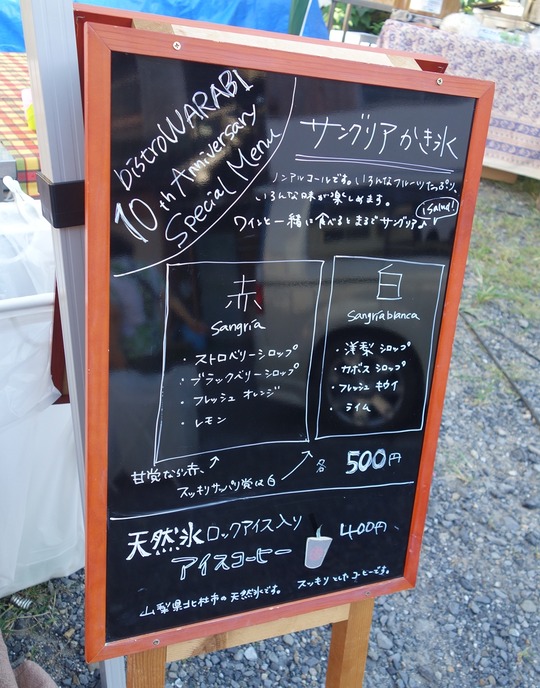 bistro WARABI
10th Anniversary
Special Menu
サングリアかき氷
ノンアルコールです。いろんなフルーツたっぷり、
いろんな味が楽しめます。
ワインと一緒に食べるとまるでサングリア♪
¡Salud!
赤
Sangría
・ストロベリーシロップ
・ブラックベリーシロップ
・フレッシュ オレンジ
・レモン
白
Sangría blanca
・洋梨 シロップ
・カボス シロップ
・フレッシュ キウイ
・ライム
甘党なら赤、↑
スッキリサッパリ党は白
各 500円
天然氷 ロックアイス入り
アイスコーヒー
400円
山梨県北杜市の天然氷です。
スッキリとしたコーヒーです。